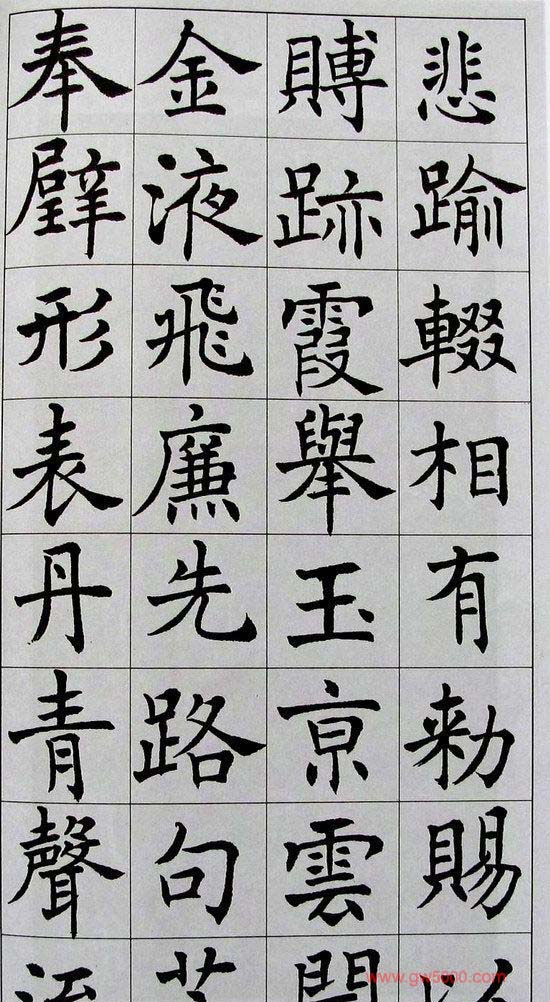 悲踰輟相有勑賜
賻跡霞舉玉亰雲
金液飛廉先路句
奉璧形表丹青聲
www.gw5000.com